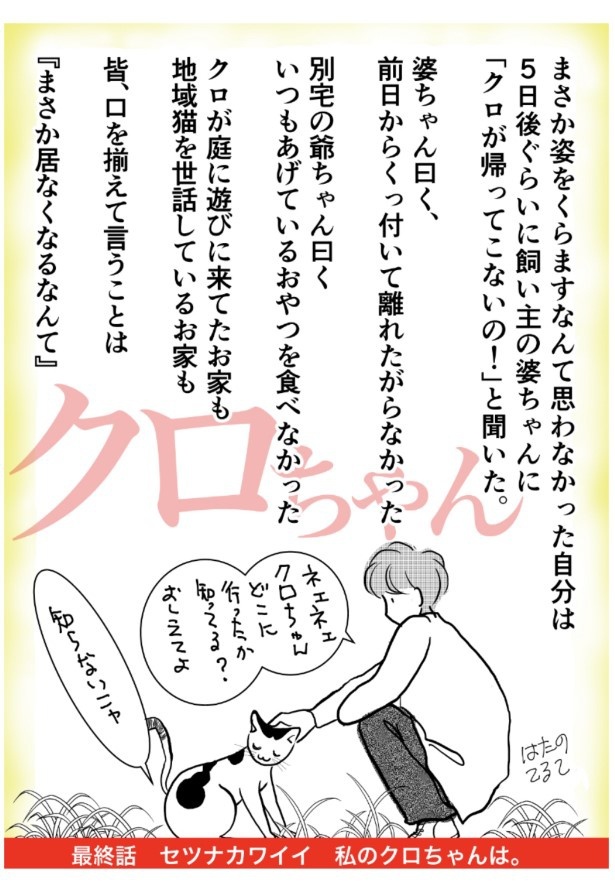 まさか姿をくらますなんて思わなかった自分は
5日後ぐらいに飼い主の婆ちゃんに
「クロが帰ってこないの!」と聞いた。
婆ちゃん曰く、
前日からくっ付いて離れたがらなかった
別宅の爺ちゃん曰く
いつもあげているおやつを食べなかった
クロが庭に遊びに来てたお家も
地域猫を世話しているお家も
皆、口を揃えて言うことは
『まさか居なくなるなんて』
クロちゃん
ネェネェ
クロちゃん
どこに
行ったか
知ってる?
おしえてよ
知らないニャ
はたの
てるて
最終話 セツナカワイイ 私のクロちゃんは。